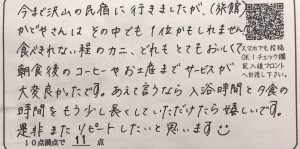 今まで沢山の民宿に行きましたが、(旅館)
かどやさんは その中でも 1位かもしれません
食べきれない程のカニ、どれも とてもおいしく?
朝食後のコーヒーやお土産までサービスが
大変良かったです。あえて言うなら入浴時間と夕食の
時間を もう少し長くしていただけたら嬉しいです。
是非またリピートしたいと思います
スマホでも投稿
OK!チェック欄
記入後フロント
へお渡し下さい。
10点満点で 11 点